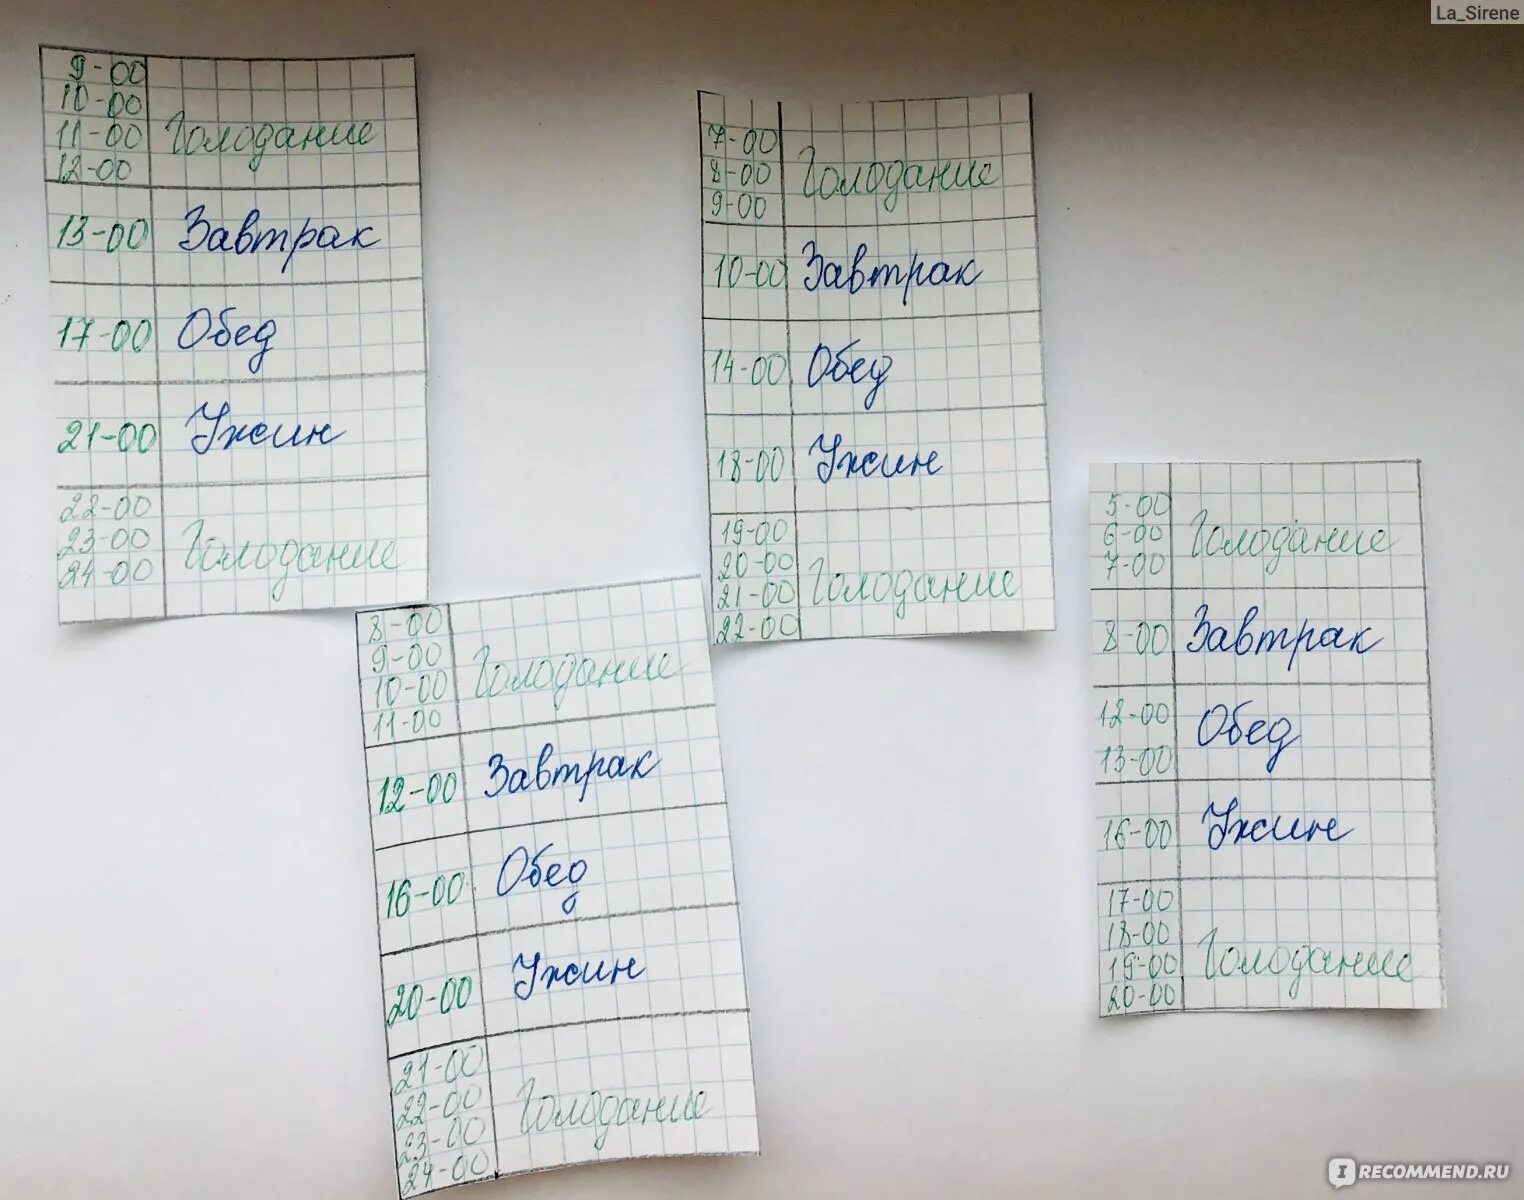 La_Sirene
9-00
10-00
11-00 Голодание
12-00
13-00 Завтрак
17-00 Обед
21-00 Ужин
22-00
23-00 Голодание
24-00
7-00
8-00 Голодание
9-00
10-00 Завтрак
14-00 Обед
18-00 Ужин
19-00
20-00 Голодание
21-00
22-00
8-00
9-00 Голодание
10-00
11-00
12-00 Завтрак
16-00 Обед
20-00 Ужин
21-00
22-00 Голодание
23-00
24-00
5-00
6-00 Голодание
7-00
8-00 Завтрак
12-00 Обед
13-00
16-00 Ужин
17-00
18-00
19-00 Голодание
20-00
IRECOMMEND.RU